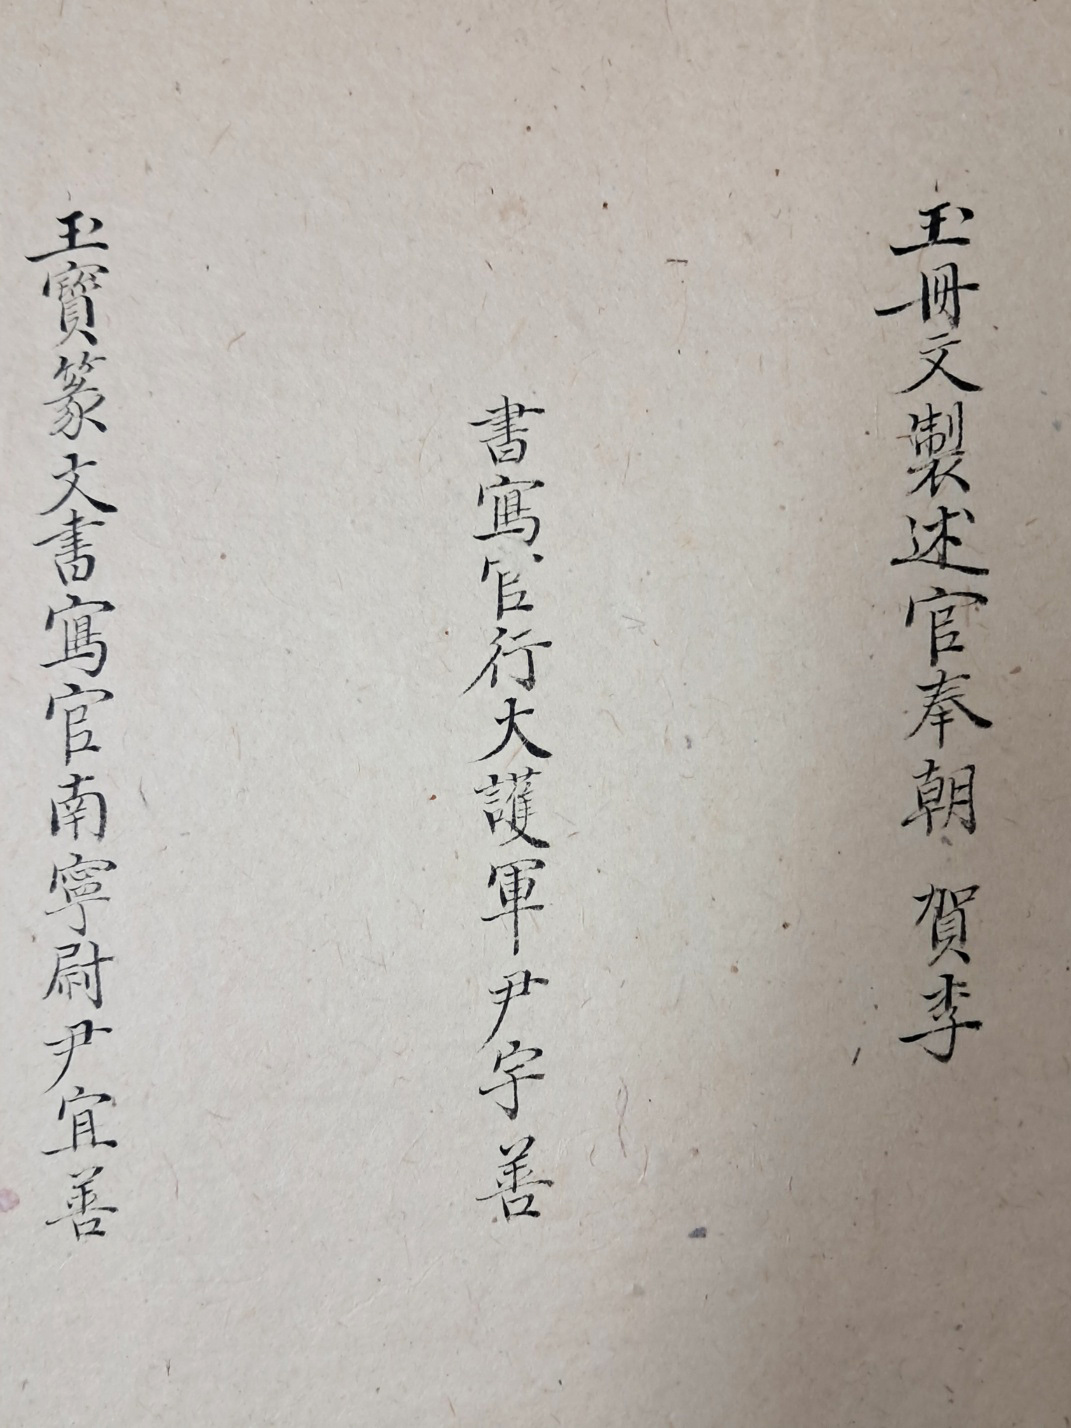 玉冊文製述官奉朝 賀李
書寫官行大護軍尹字善
玉寶篆文書寫官南寧尉尹宜善